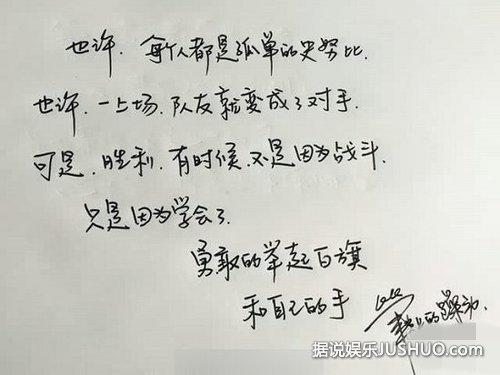 也许.每个人都是孤单的史努比.
也许.一上场.队友就变成了对手.
可是.胜利.有时候.不是因为战斗.
只是因为学会了.
勇敢的举起白旗
和自己的手
的躁动.
据说娱乐JUSHUO.com